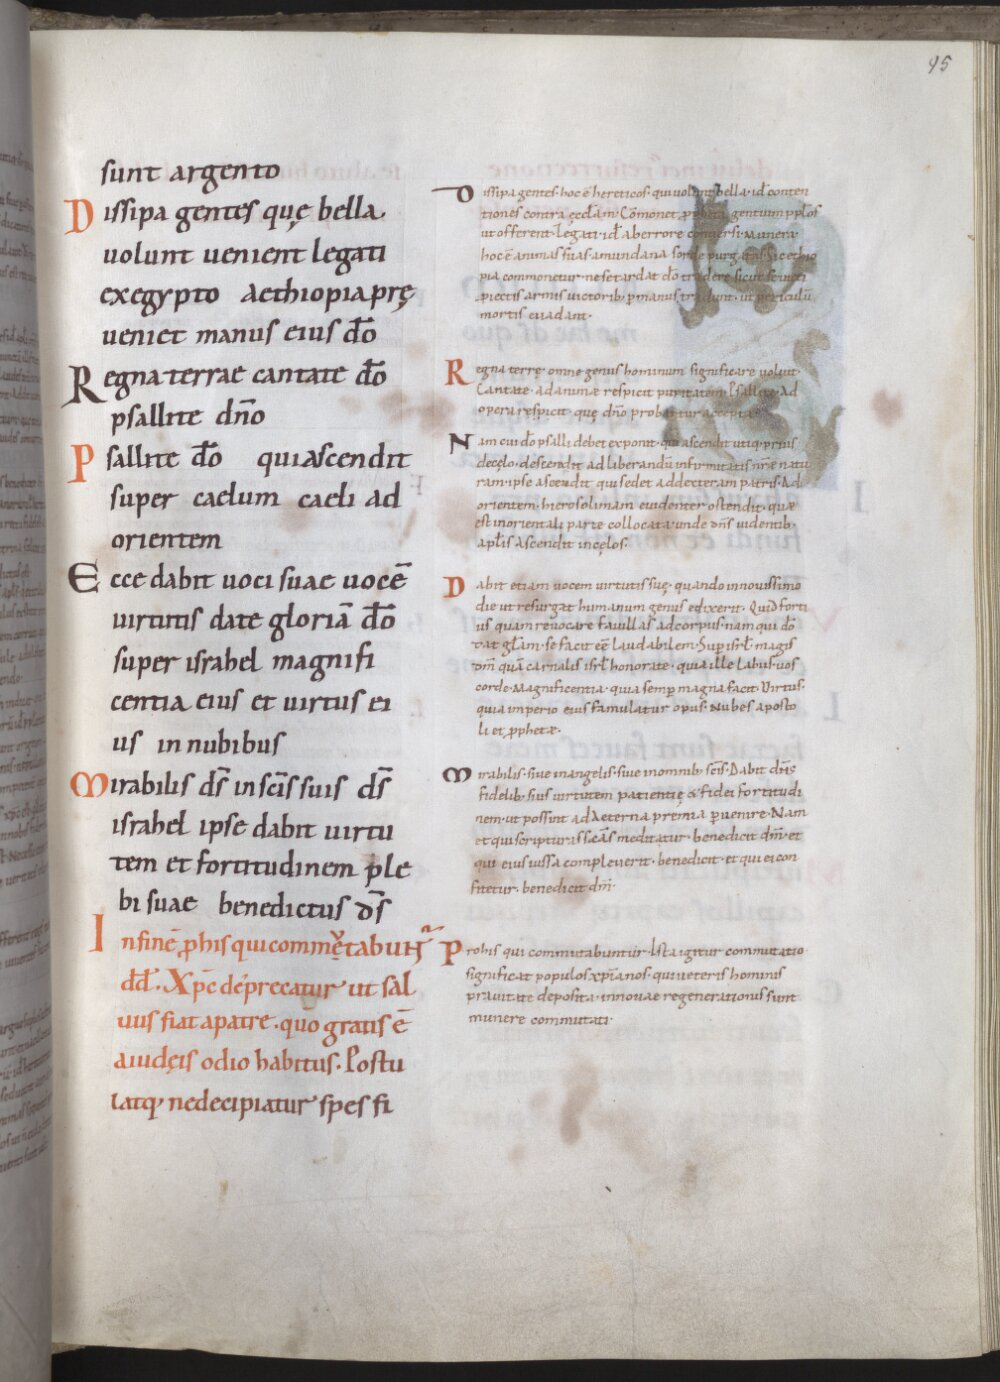 95
sunt argento
Dissipa gentes quę bella
uolunt uenient legati
exegypto aethiopia prę
ueniet manus eius dō
Regna terrae cantate dō
psallite dn̄o
Psallite dō qui ascendit
super caelum caeli ad
orientem
Ecce dabit uoci suae uocē
uirtutis date gloriā dō
super israhel magnifi
centia eius et uirtus ei
us in nubibus
Mirabilis ds̄ in scīs suis ds̄
israhel ipse dabit uirtu
tem et fortitudinem ple
bi suae benedictus ds̄
In finē p his qui commutabunt
dd̄. Xpc̄ deprecatur ut sal
uus fiat apatre. quo gratis ē
aiudęis odio habitus. Postu
latq; ne decipiatur spes fi
Dissipa gentes. hoc ē hereticos. qui uolunt bella. id conten
tiones contra ęcclam. Cōmonet gentium pplos
ut offerent. legati id aberrore conuersi. Munera
hoc ē animas suas amundana sorde purgatas. Sic ethio
pia commonetur. ne se tardat dō tradere sicut se uicti
piectis armis uictorib. p manus tradunt. ut periculū
mortis euadant.
Regna terre. omne genus hominum significare uoluit.
Cantate. ad animae respicit puritatem. Psallite. Ad
opera respicit. quę dn̄o probantur accepta.
Nam cui dō psalli debet exponit. qui ascendit utiq; prius
decęlo. descendit ad liberandū infirmitatis nrē natu
ram. ipse ascendit qui sedet ad dexteram patris. Ad
orientem. hierosolimam euidenter ostendit. quae
est in orientali parte collocata. unde dn̄s uidentib.
aplis ascendit in cęlos.
Dabit etiam uocem uirtutis suę. quando in nouissimo
die ut resurgat humanum genus edixerit. Quid forti
us quam reuocare fauillas ad corpus. nam qui dō
dat gl̄am. se facit eē laudabilem. Sup isrl̄. magis
dn̄m quā carnalis isrl̄ honorate. quia ille labiis uos
corde. Magnificentia. quia semp magna facit. Virtus.
quia imperio eius famulatur opus. Nubes aposto
li et pphetae.
Mirabilis. siue in angelis. siue in omnib. scīs. Dabit dn̄s
fidelib. suis uirtutem patientię & fidei fortitudi
nem. ut possint ad aeterna premia puenire. Nam
et qui scripturis scās meditatur. benedicit dn̄m. et
qui eius iussa compleuerit. benedicit. et qui ei con
fitetur. benedicit dn̄m.
Pro his qui commutabuntur. Ista igitur commutatio
significat populos xpianos. qui ueteris hominis
prauitate deposita. in nouae regenerationis sunt
munere commutati.